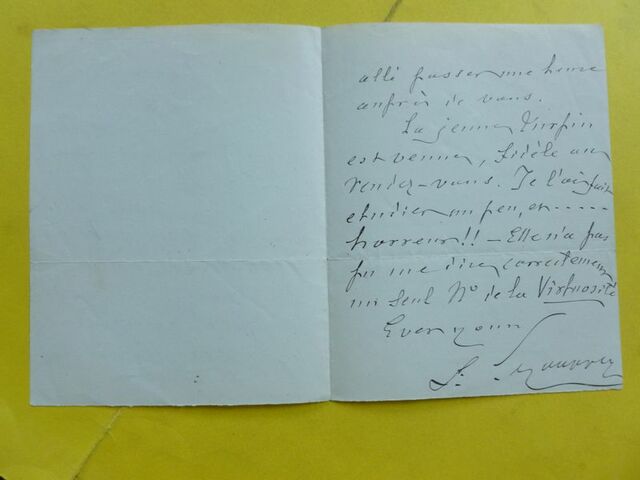 allé passer une heure
auprès de vous.
La jeune Turpin
est venue, fidèle au
rendez-vous. Je l'ai fait
étudier un peu, et .....
horreur!! – Elle n'a pas
pu me dire correctement
un seul N° de la Virtuosité
Ever yours